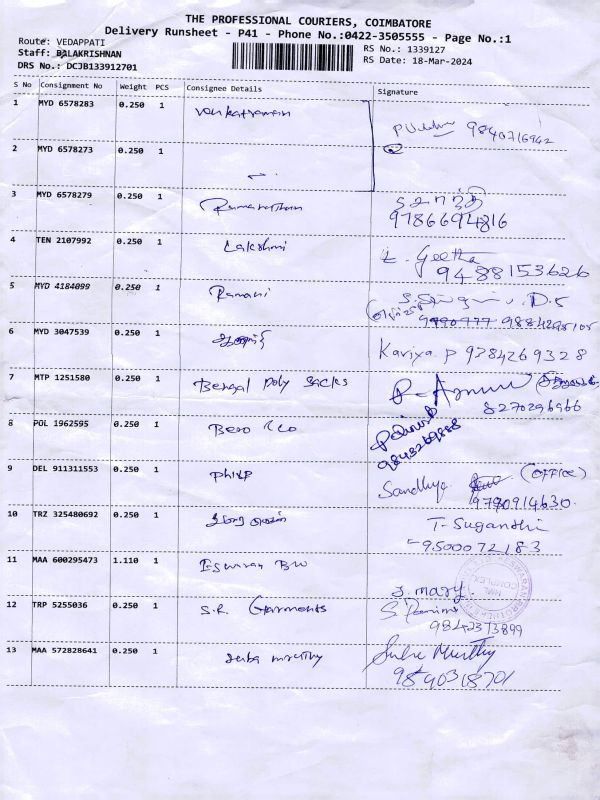 THE PROFESSIONAL COURIERS, COIMBATORE
Delivery Runsheet - P41 - Phone No.:0422-3505555 - Page No.:1
Route: VEDAPPATI
Staff: BALAKRISHNAN
DRS No.: DCJB133912701
RS No.: 1339127
RS Date: 18-Mar-2024
S No Consignment No Weight PCS Consignee Details Signature
1 MYD 6578283 0.250 1 Venkatraman
9840716942
2 MYD 6578273 0.250 1
3 MYD 6578279 0.250 1
9786694816
4 TEN 2107992 0.250 1 Lakshmi L. Geetha
9488153626
5 MYD 4184099 0.250 1 Ramani
6 MYD 3047539 0.250 1 Kariya P 9784269328
7 MTP 1251580 0.250 1 Bengal Poly Sacks
8270296966
8 POL 1962595 0.250 1
9 DEL 911311553 0.250 1 Philip Sandhya (OFFICE)
9790914630
10 TRZ 325480692 0.250 1 T. Sugandhi
9500072183
11 MAA 600295473 1.110 1 J. mary.
12 TRP 5255036 0.250 1 S.R. Garments
9842373899
13 MAA 572828641 0.250 1
9840318701